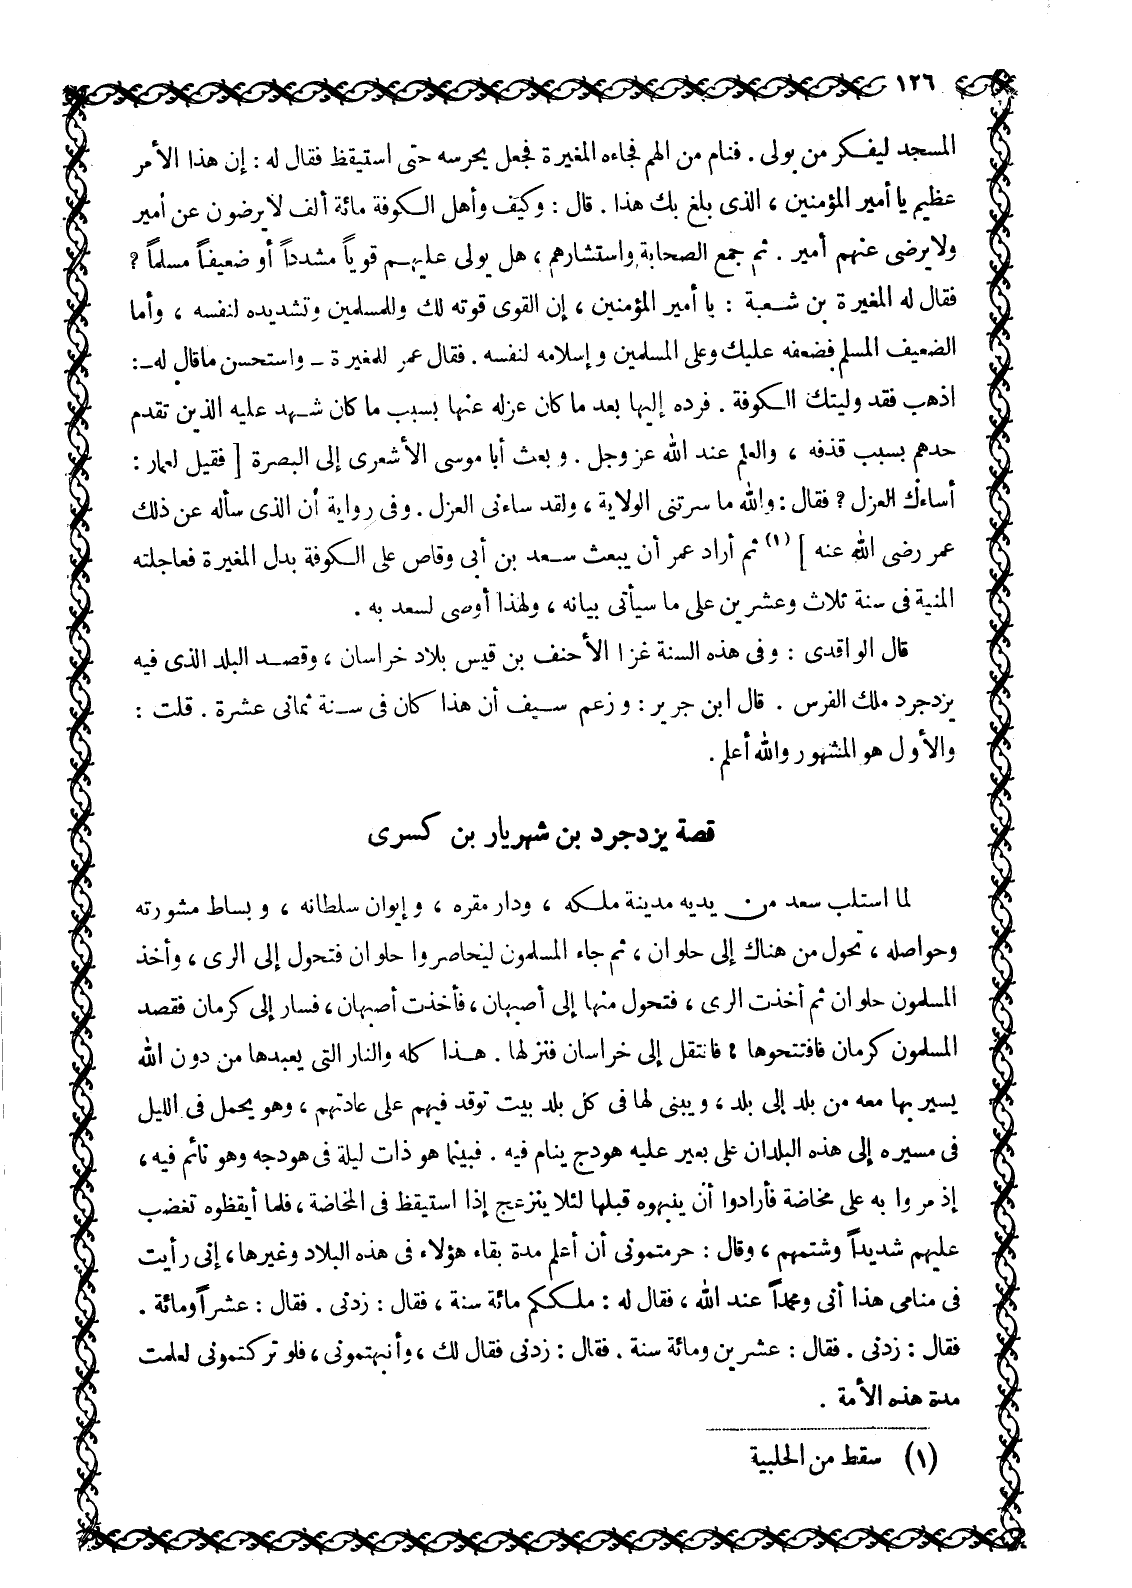 ١٢٦
المسجد ليفكر من يولى . فنام من الهم فجاءه المغيرة فجعل يحرسه حتى استيقظ فقال له : إن هذا الأمر
عظيم يا أمير المؤمنين ، الذى بلغ بك هذا . قال : وكيف وأهل الكوفة مائة ألف لا يرضون عن أمير
ولا يرضى عنهم أمير . ثم جمع الصحابة واستشارهم ، هل يولى عليهم قوياً مشدداً أو ضعيفاً مسلماً ؟
فقال له المغيرة بن شعبة : يا أمير المؤمنين ، إن القوى قوته لك وللمسلمين وتشديده لنفسه ، وأما
الضعيف المسلم فضعفه عليك وعلى المسلمين وإسلامه لنفسه . فقال عمر للمغيرة ـ واستحسن ما قال له ـ :
اذهب فقد وليتك الكوفة . فرده إليها بعد ما كان عزله عنها بسبب ما كان شهد عليه الذين تقدم
حدهم بسبب قذفه ، والعلم عند الله عز وجل . وبعث أبا موسى الأشعرى إلى البصرة [ فقيل لعمار :
أساءك العزل ؟ فقال : والله ما سرتنى الولاية ، ولقد ساءنى العزل . وفى رواية أن الذى سأله عن ذلك
عمر رضى الله عنه ] (١) ثم أراد عمر أن يبعث سعد بن أبى وقاص على الكوفة بدل المغيرة فعاجلته
المنية فى سنة ثلاث وعشرين على ما سيأتى بيانه ، ولهذا أوصى لسعد به .
قال الواقدى : وفى هذه السنة غزا الأحنف بن قيس بلاد خراسان ، وقصد البلد الذى فيه
يزدجرد ملك الفرس . قال ابن جرير : وزعم سيف أن هذا كان فى سنة ثمانى عشرة . قلت :
والأول هو المشهور والله أعلم .
قصة يزدجرد بن شهريار بن كسرى
لما استلب سعد من يديه مدينة ملكه ، ودار مقره ، وإيوان سلطانه ، وبساط مشورته
وحواصله ، تحول من هناك إلى حلوان ، ثم جاء المسلمون ليحاصروا حلوان فتحول إلى الرى ، وأخذ
المسلمون حلوان ثم أخذت الرى ، فتحول منها إلى أصبهان ، فأخذت أصبهان ، فسار إلى كرمان فقصد
المسلمون كرمان فافتتحوها ، فانتقل إلى خراسان فنزلها . هذا كله والنار التى يعبدها من دون الله
يسير بها معه من بلد إلى بلد ، ويبنى لها فى كل بلد بيت توقد فيهم على عادتهم ، وهو يحمل فى الليل
فى مسيره إلى هذه البلدان على بعير عليه هودج ينام فيه . فبينما هو ذات ليلة فى هودجه وهو نائم فيه ،
إذ مروا به على مخاضة فأرادوا أن ينبهوه قبلها لئلا ينزعج إذا استيقظ فى المخاضة ، فلما أيقظوه تغضب
عليهم شديداً وشتمهم ، وقال : حرمتمونى أن أعلم مدة بقاء هؤلاء فى هذه البلاد وغيرها ، إنى رأيت
فى منامى هذا أنى ومحمداً عند الله ، فقال له : ملككم مائة سنة ، فقال : زدنى . فقال : عشراً ومائة .
فقال : زدنى . فقال : عشرين ومائة سنة . فقال : زدنى فقال لك ، وأنبهتمونى ، فلو تركتمونى لعلمت
مدة هذه الأمة .
(١) سقط من الحلبية